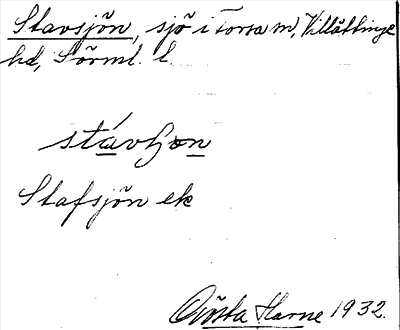 Stavsjön, sjö i Torsa sn, Villåttinge
hd, Sörml. l.
stávhon
Stafsjön ek
Gösta Harne 1932.